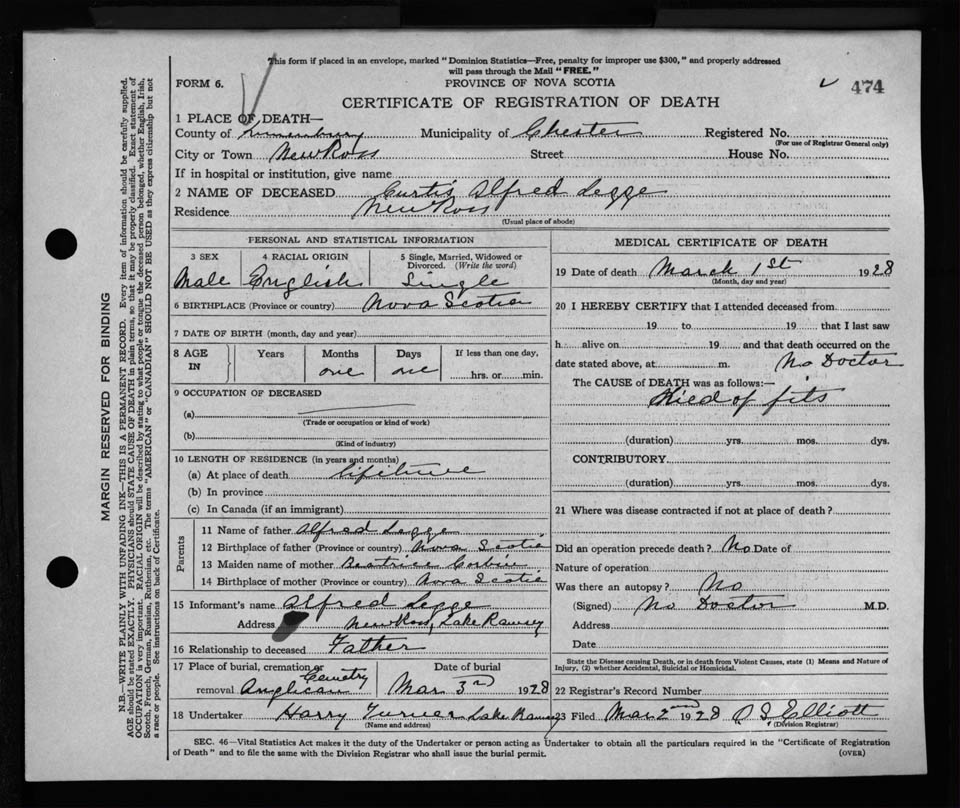 This form if placed in an envelope, marked "Dominion Statistics—Free, penalty for improper use $300," and properly addressed
will pass through the Mail "FREE."
FORM 6.
PROVINCE OF NOVA SCOTIA
474
CERTIFICATE OF REGISTRATION OF DEATH
1 PLACE OF DEATH—
County of Lunenburg Municipality of Chester Registered No.
(For use of Registrar General only)
City or Town New Ross Street House No.
If in hospital or institution, give name
2 NAME OF DECEASED Curtis Alfred Legge
Residence New Ross
(Usual place of abode)
PERSONAL AND STATISTICAL INFORMATION
3 SEX 4 RACIAL ORIGIN 5 Single, Married, Widowed or Divorced. (Write the word)
Male English Single
6 BIRTHPLACE (Province or country) Nova Scotia
7 DATE OF BIRTH (month, day and year)
8 AGE IN Years Months Days If less than one day,
one one hrs. or min.
9 OCCUPATION OF DECEASED
(a)
(Trade or occupation or kind of work)
(b)
(Kind of industry)
10 LENGTH OF RESIDENCE (in years and months)
(a) At place of death lifetime
(b) In province
(c) In Canada (if an immigrant)
Parents
11 Name of father Alfred Legge
12 Birthplace of father (Province or country) Nova Scotia
13 Maiden name of mother Beatrice Corbin
14 Birthplace of mother (Province or country) Nova Scotia
15 Informant's name Alfred Legge
Address New Ross, Lake Ramsey
16 Relationship to deceased Father
17 Place of burial, cremation or removal Anglican Cemetry Date of burial Mar 3rd 1928
18 Undertaker Harry Turner Lake Ramsey
(Name and address)
MEDICAL CERTIFICATE OF DEATH
19 Date of death March 1st 1928
(Month, day and year)
20 I HEREBY CERTIFY that I attended deceased from
19 to 19 that I last saw
h alive on 19 and that death occurred on the
date stated above, at m. No Doctor
The CAUSE of DEATH was as follows:—
Died of fits
(duration) yrs. mos. dys.
CONTRIBUTORY
(duration) yrs. mos. dys.
21 Where was disease contracted if not at place of death?
Did an operation precede death? No Date of
Nature of operation
Was there an autopsy? No
(Signed) No Doctor M.D.
Address
Date
State the Disease causing Death, or in death from Violent Causes, state (1) Means and Nature of
Injury, (2) whether Accidental, Suicidal or Homicidal.
22 Registrar's Record Number
23 Filed Mar 2nd 1928 O S Elliott
(Division Registrar)
SEC. 46—Vital Statistics Act makes it the duty of the Undertaker or person acting as Undertaker to obtain all the particulars required in the "Certificate of Registration
of Death" and to file the same with the Division Registrar who shall issue the burial permit. (OVER)
MARGIN RESERVED FOR BINDING
N.B.—WRITE PLAINLY WITH UNFADING INK—THIS IS A PERMANENT RECORD. Every item of information should be carefully supplied.
AGE should be stated EXACTLY. PHYSICIANS should STATE CAUSE OF DEATH in plain terms, so that it may be properly classified. Exact statement of
OCCUPATION is very important. RACIAL ORIGIN will be described by stating to what people or tongue the deceased person belonged, whether English, Irish,
Scotch, French, German, Russian, Ruthenian, etc. The terms "AMERICAN" or "CANADIAN" SHOULD NOT BE USED as they express citizenship but not
a race or people. See instructions on back of Certificate.